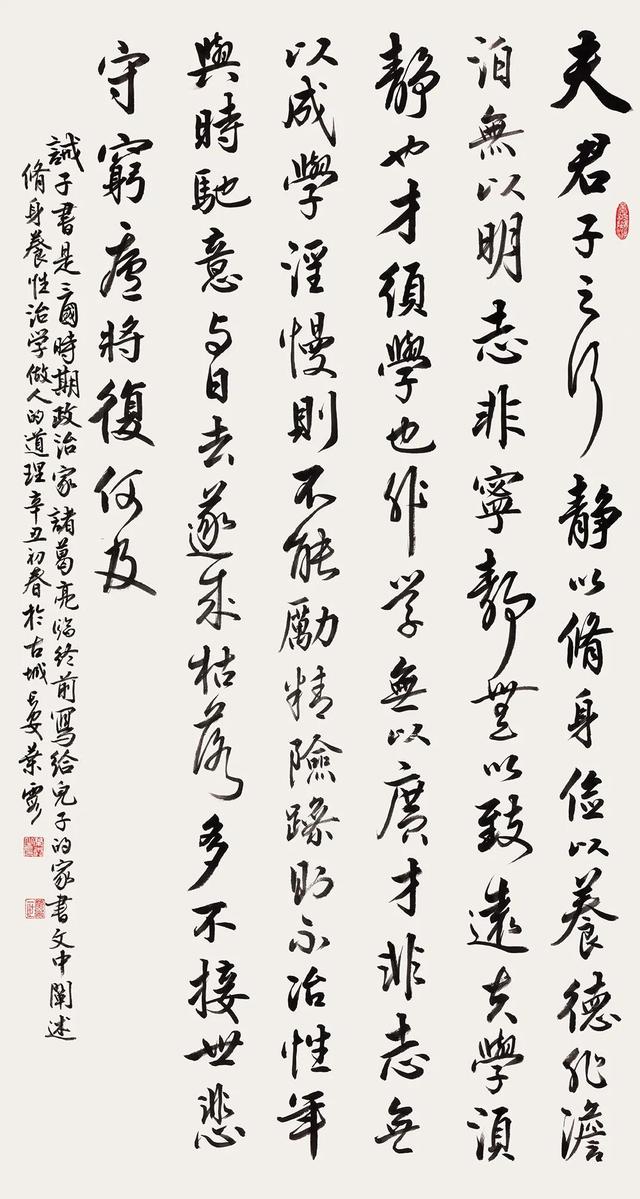 夫君子之行靜以脩身儉以養德非澹
泊無以明志非寧靜無以致遠夫學須
靜也才須學也非学無以廣才非志無
以成學淫慢則不能勵精險躁則不冶性年
與時馳意与日去遂成枯落多不接世悲
守窮廬將復何及
誡子書是三國時期政治家諸葛亮臨終前寫給兒子的家書文中闡述
脩身養性治学做人的道理辛丑初春於古城長安